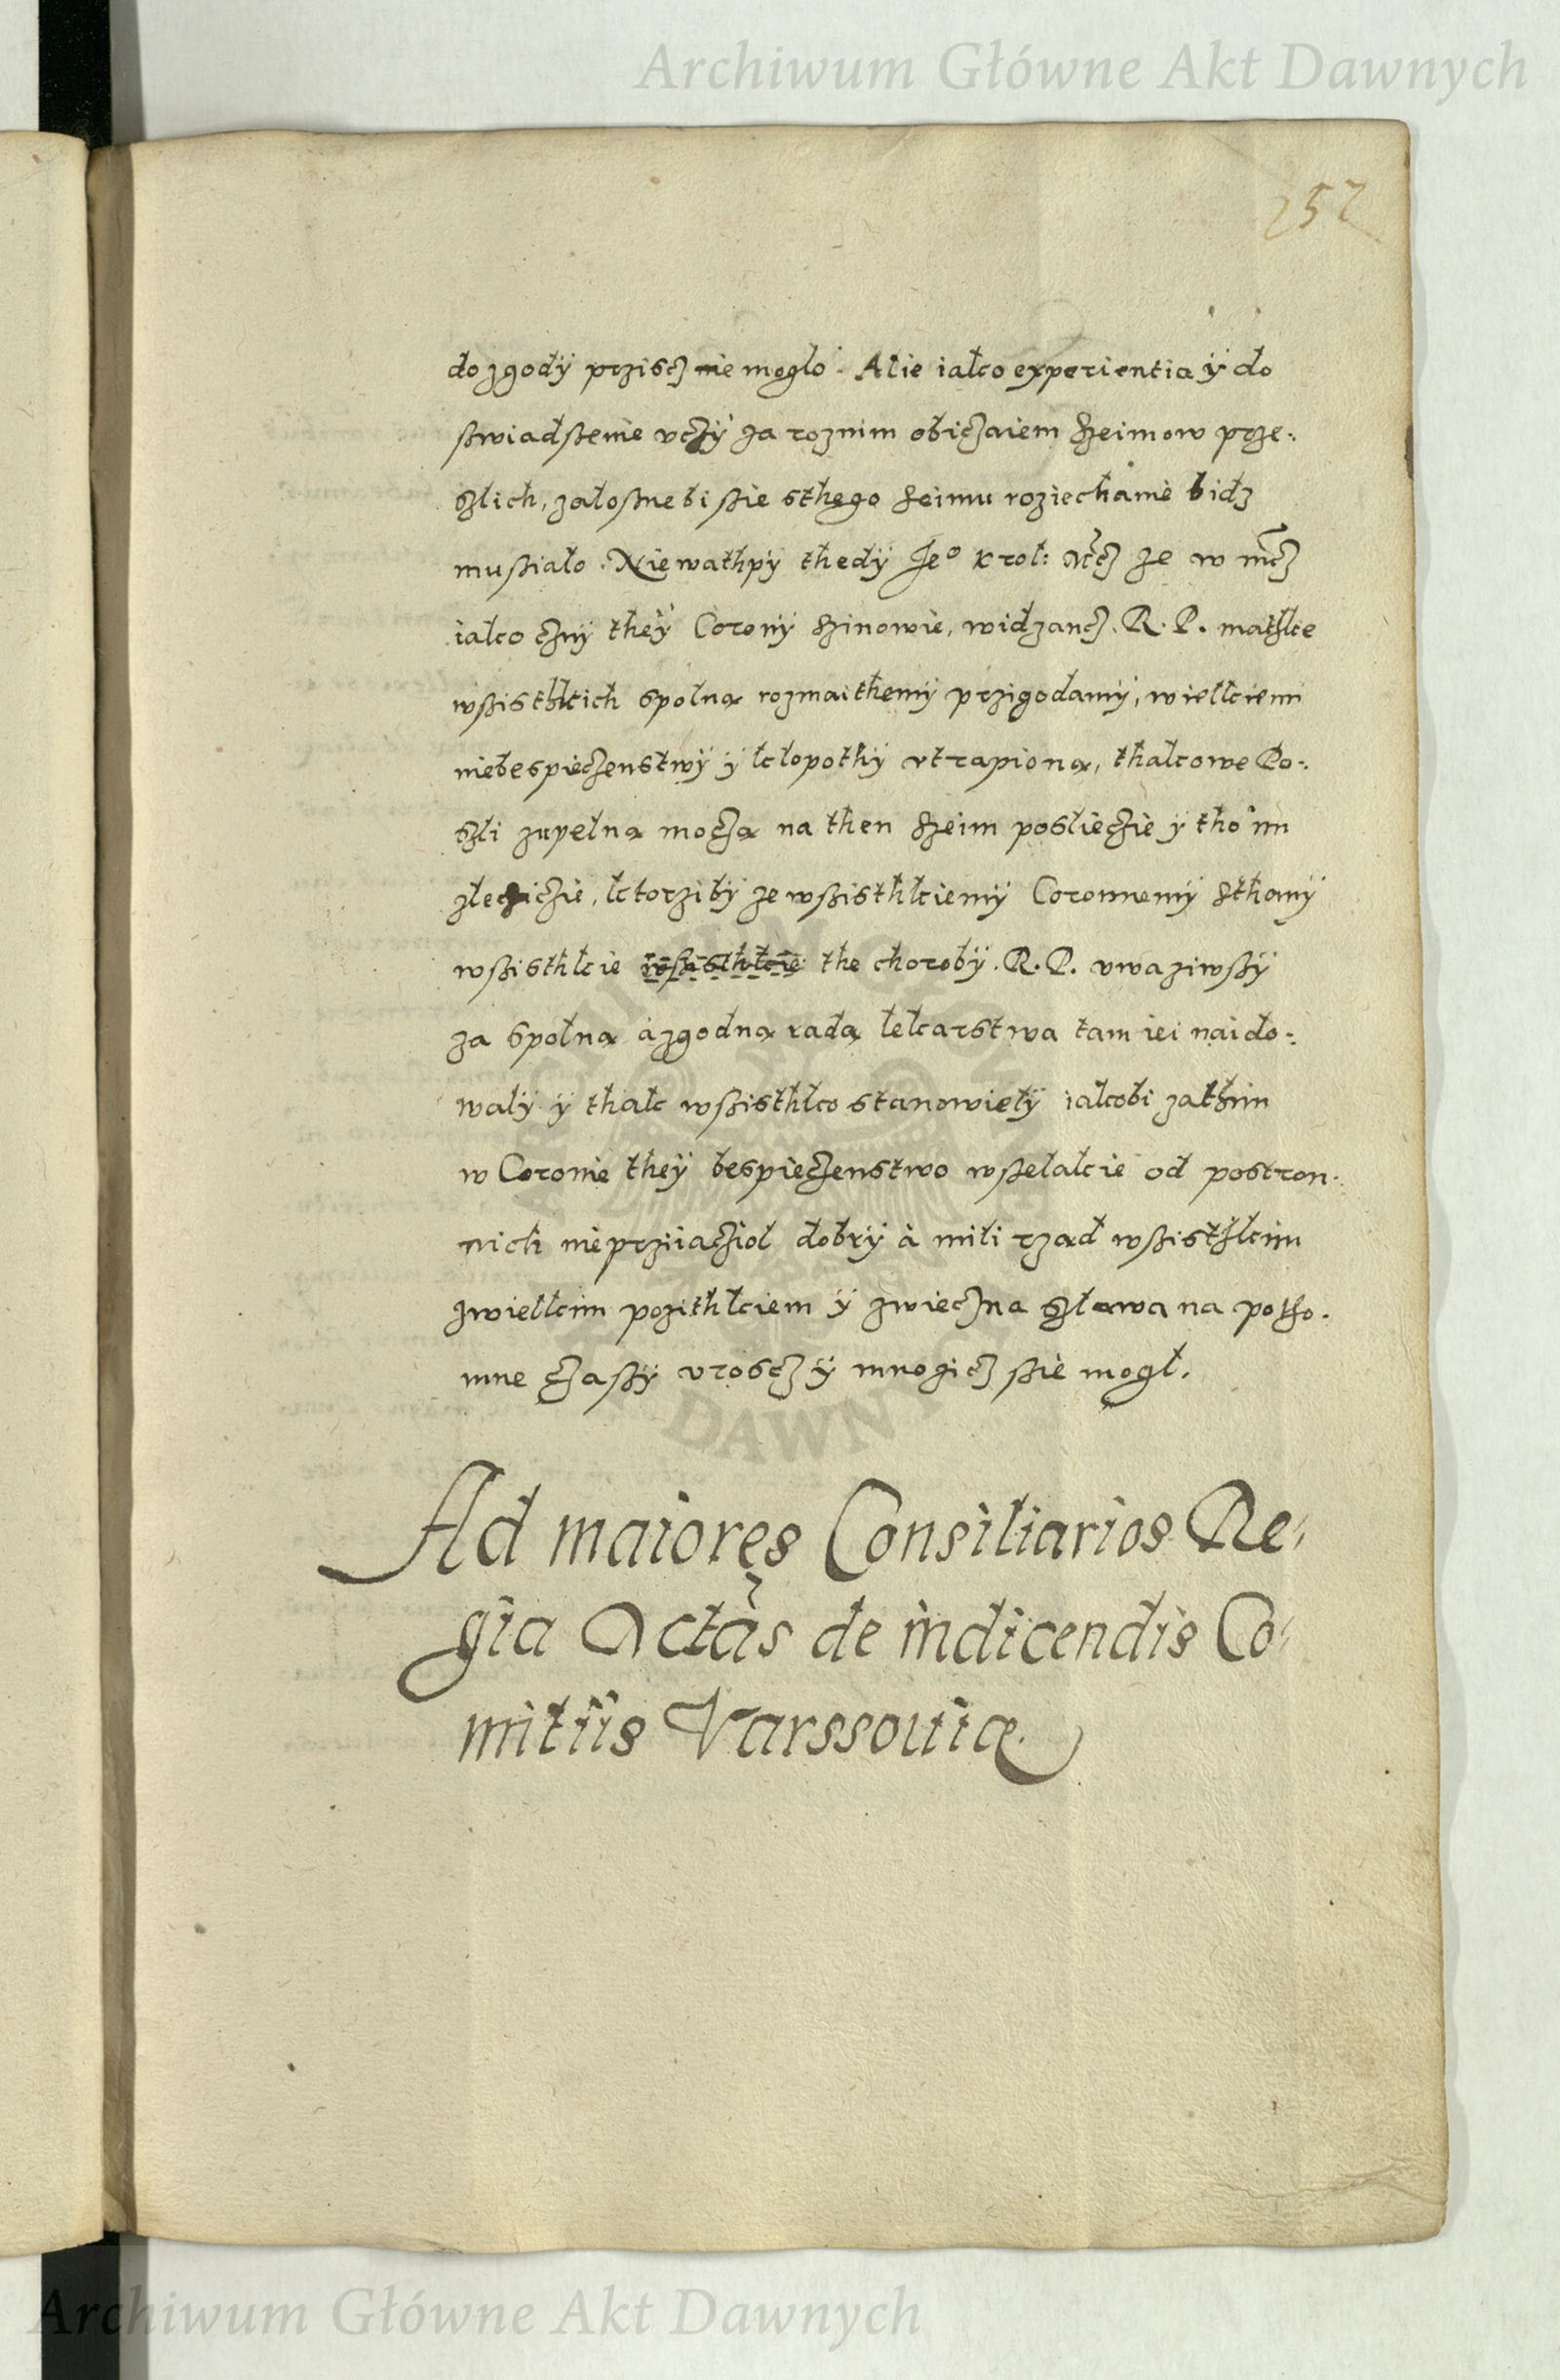 Archiwum Główne Akt Dawnych
252
do zgody prziscz nie moglo. Alie iako experientia y do
swiadszenie vczy za roznim obiczaiem Szeimow prze-
szlich, załosne bi sie sthego seimu roziechanie bidz
musiało. Nie wathpy thedy Jeº Krol: Mcz ze w mcz
iako czny they Corony szinowie, widzancz. R. P. mathke
wszisthkich spolna rozmaithemy przigodamy, wielkiemi
niebespieczenstwy y klopothy vtrapiona, thakowe Po-
szli zupelna mocza na then szeim poslieczie y tho im
zleczicie, ktorziby ze wszisthkiemy Coronnemy sthany
wszisthkie wszisthkie the choroby. R. P. vwaziwszy
za spolna a zgodna rada lekarstwa tam iei naido-
waly y thak wszisthko stanowiely iakobi zathim
w Coronie they bespieczenstwo wszelakie od postron-
nich nieprziiacziol dobry à mili rzad wszisthkim
zwielkim pozithkiem y zwieczna szlawa na potho-
mne czasy vroscz y mnozicz sie mogł.
Ad maiores Consiliarios Re-
gia Mctas de indicendis Co-
mitiis Varssouiæ
ARCHIWUM GŁÓWNE AKT DAWNYCH
Archiwum Główne Akt Dawnych